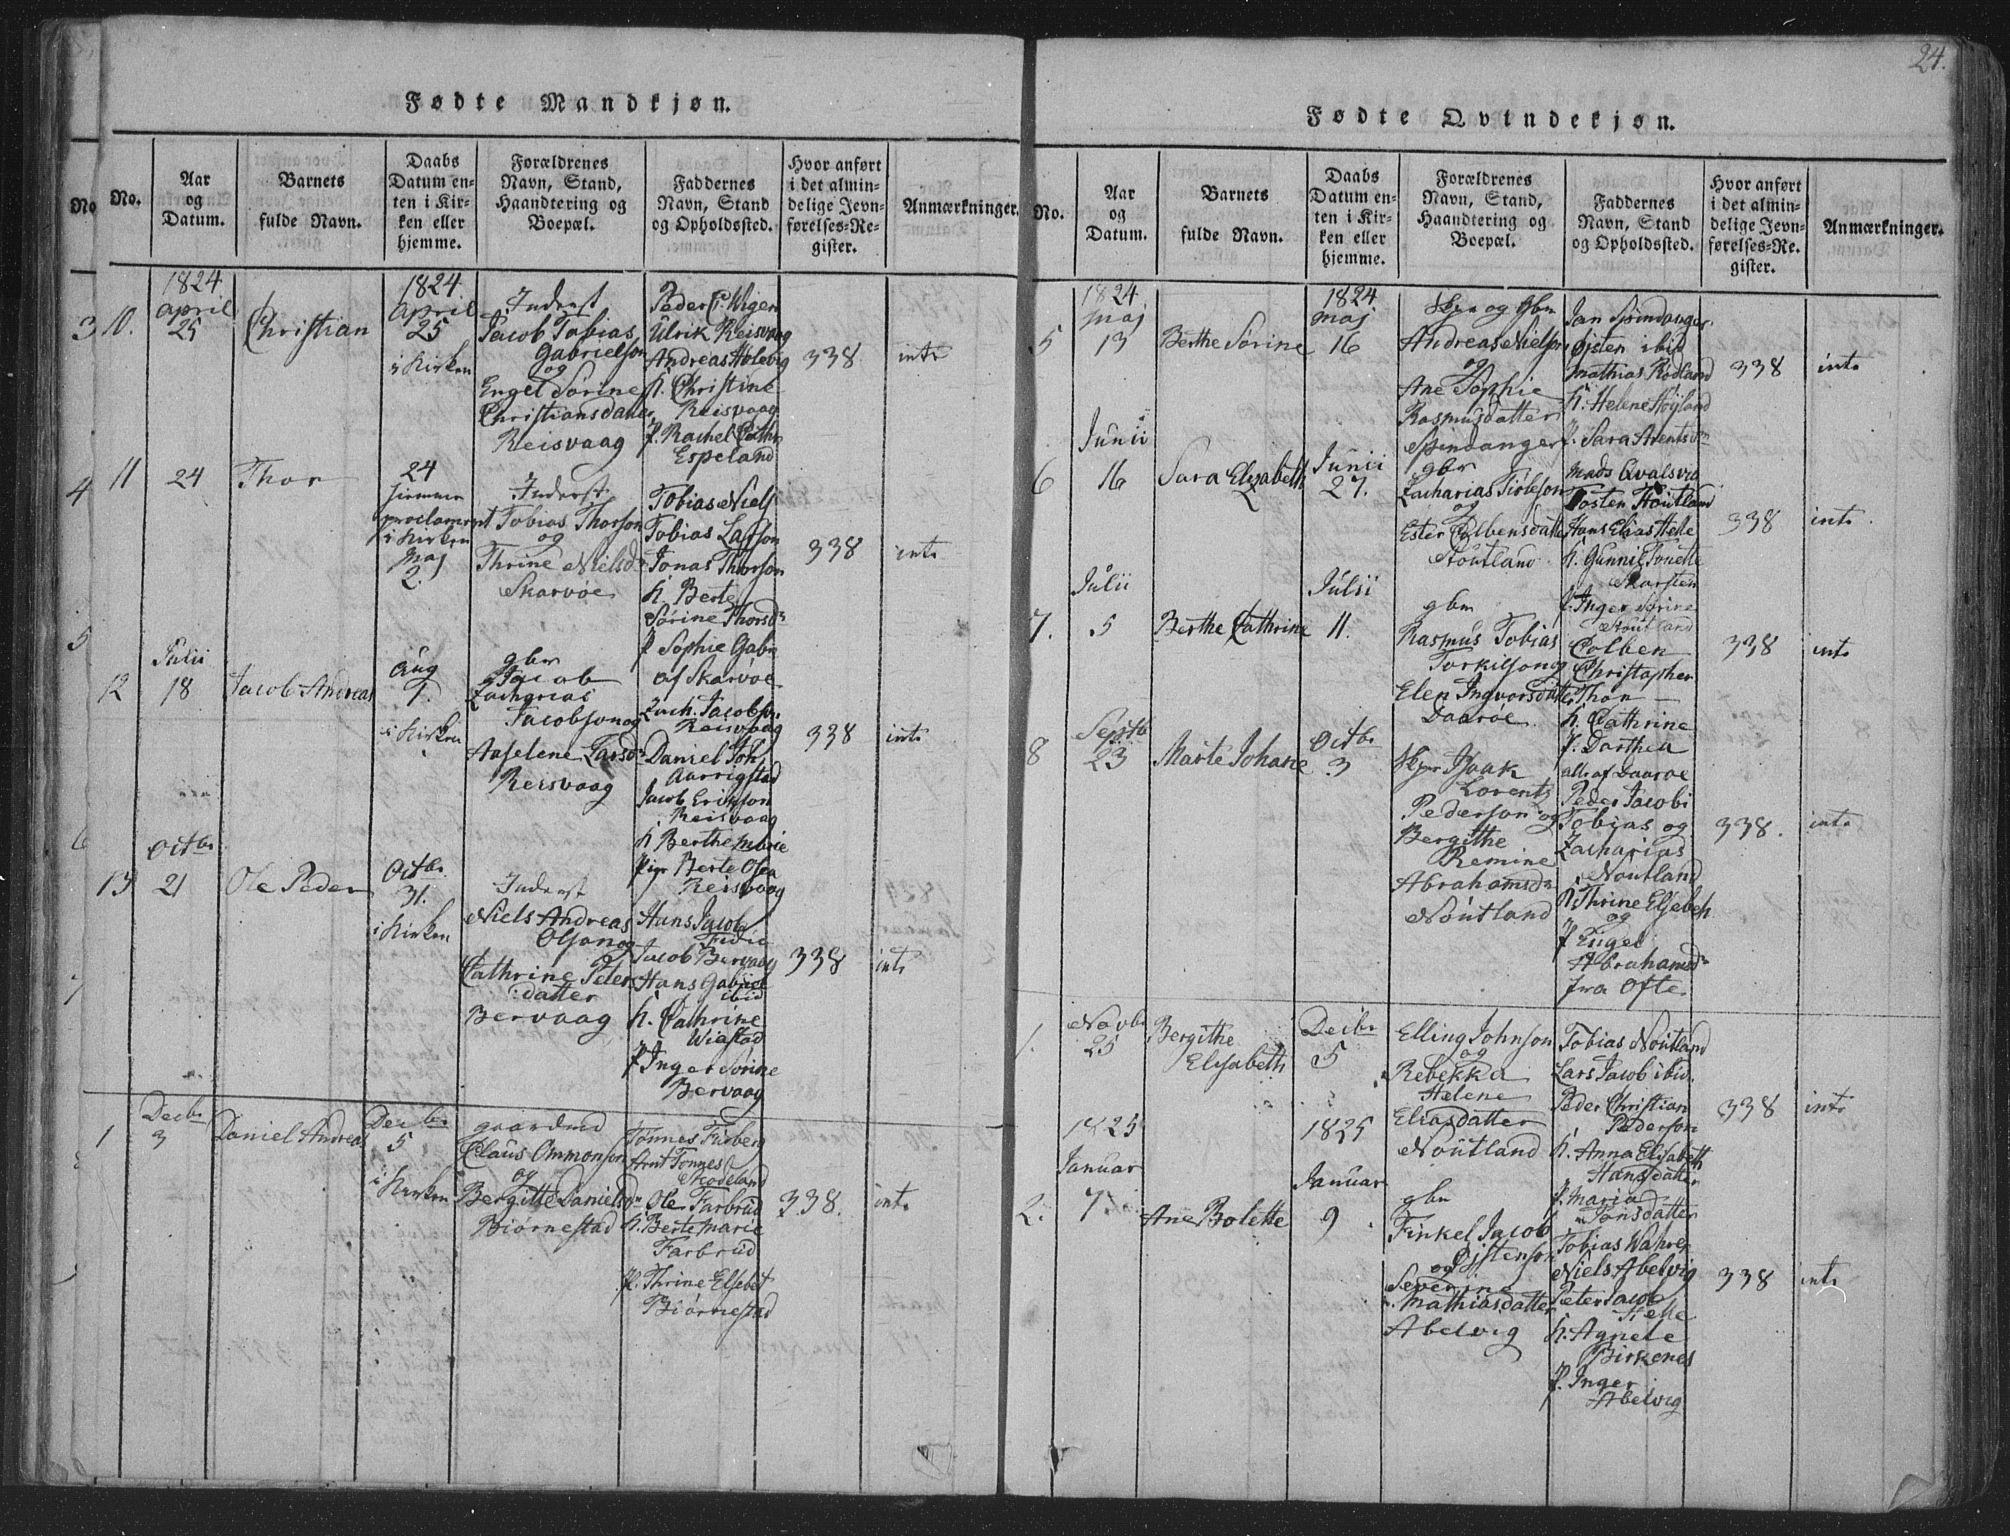 24.
Fødte Mandkjøn.
No.
No.
Aar
og
Datum.
Barnets
fulde Navn.
Daabs
Datum en-
ten i Kir-
ken eller
hjemme.
Forældrenes
Navn, Stand,
Haandtering og
Boepæl.
Faddernes
Navn, Stand
og Opholdssted.
Hvor anført
i det almin-
delige Jevn-
førelses-Re-
gister.
Anmærkninger.
3
4
5
6
10.
1824
April
25
Christian
1824
April
25
i Kirken
Inderst
Jacob Tobias
Gabrielson
og
Engel Sørine
Christiansdatter
Reisvaag
Peder C. Wigen
Ulrik Reisvaag
Andreas Holvig
K. Christine
Reisvaag
P. Rachel Cathr
Espeland
338
intr
11
24
Thor
24
hiemme
proclament
i Kirken
Maj
2.
Inderst
Tobias Thorson
og
Thrine Nielsdr
Skarvøe
Tobias Niels
Tobias Larson
Jonas Thorson
K Berte
Sørine Thorsdr
P Sophie Gabr
af Skarvøe
338
intr
12
Julii
18
Jacob Andreas
Aug
1.
i Kirken
gbr
Jacob
Zacharias
Jacobson og
Aaselene Larsdr
Reisvaag
Zach. Jacobson
Reisvaag
Daniel Joh
Aarrigstad
Jacob Erikson
Reisvaag
K Berthe Marie
Pige Berte Olea
Reisvaag
338
intr
13
Octbr
21
Ole Peder
Octbr
31.
i Kirken
Inderst
Niels Andreas
Olson og
Cathrine Peters
datter
Bervaag
Hans Jacob
Jacob Bervaag
Hans Gabriel
ibid
K. Cathrine
Wiastad
P Inger Sørine
Bervaag
338
intr
1
Decbr
3
Daniel Andreas
Decbr
5
i Kirken
gaardmd
Claus Ommonson
og
Bergitte Danielsdr
Biørnestad
Tønnes Fuberg
Arnt Tønnes
Skodeland
Ole Farbrud
K. Berte Marie
Farbrud
P. Thrine Elsebet
Biørnestad
338.
intr
Fødte Qvindekjøn.
No.
Aar
og
Datum.
Barnets
fulde Navn.
Daabs
Datum en-
ten i Kir-
ken eller
hjemme.
Forældrenes
Navn, Stand,
Haandtering og
Boepæl.
Faddernes
Navn, Stand
og Opholdssted.
Hvor anført
i det almin-
delige Jevn-
førelses-Re-
gister.
Anmærkninger.
5
1824
Maj
13
Berthe Sørine
1824
Maj
16
og Gbr
Andreas Nielson
og
Ane Sophie
Rasmusdatter
Spindanger
Jan Spindanger
Øjsten ibid
Mathias Rødland
K. Helene Høyland
P. Sara Arentsdr
338
intr
6
Junii
16
Sara Elizabeth
Junii
27.
gbr
Zacharias Tirleson
og
Ester Colbensdatter
Støutland
Mads Qvalsvig
Tosten Høutland
Hans Elias Helle
K. Gunnil Touette
Skarsten
P. Inger Sørine
Støutland
338
intr
7.
Julii
5
Berthe Cathrine
Julii
11.
gbr
Rasmus Tobias
Torkilson og
Elen Ingvorsdatter
Daarøe
Colben
Christopher
Thor
K. Cathrine
P. Dorthea
alle af Daarøe
338
intr
8
Septbr
23
Marte Johane
Octbr
3
Isaak
Lorentz
Pederson og
Bergithe
Remine
Abrahamsdr
Nøutland
Peder Jacob
Tobias og
Zacharias
Nøutland
K Thrine Elsebeh
og
P Engel
Abrahamsdr
fra Ofte
338.
intr
1.
Novbr
25
Bergithe
Elisabeth
Decbr
5
Elling Johnson
og
Rebekka
Helene
Eliasdatter
Nøutland
Tobias Nøutland
Lars Jacob ibid.
Peder Christian
Pederson
K. Anna Elisabeth
Hansdatter
P. Maria
Tønsdatter
338
intr
2.
1825
Januar
7.
Ane Bolette
1825
Januar
9
gbr
Finkel Jacob
Øjstenson
og
Severine
Mathiasdatter
Abelvig
Tobias Wahren
Niels Abelvig
Peter Jacob
Helle
K. Agnete
Birkenes
P. Inger
Abelvig
338
intr